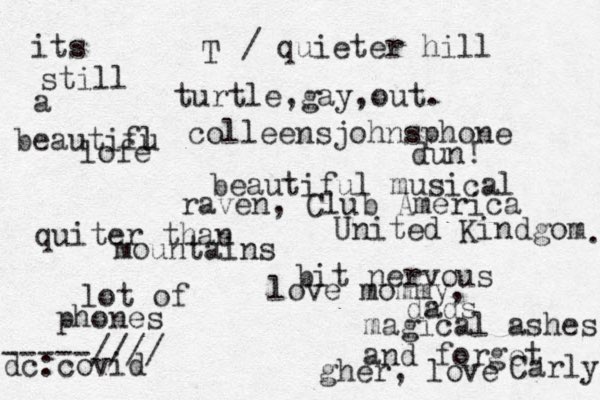 its
still
a
beautiflu
lofe
T / quieter hill
turtle,gay,out.
colleensjohnsphone
dun!
beautiful musical
raven, Club America
United Kindgom.
quiter than
mountains
bit nervous
love mommy,
dads
lot of
phones
magical ashes
and forget
_____////
dc:covid
gher, love Carly